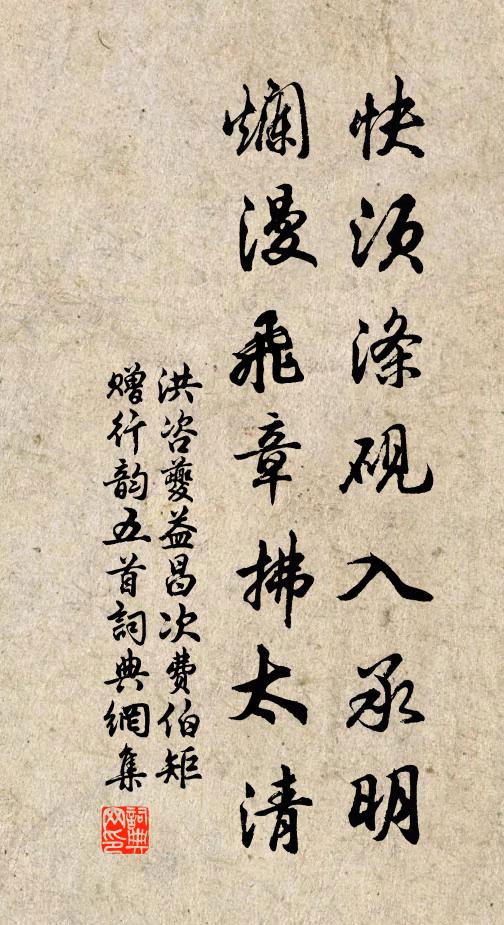 快須滌硯入承明
爛漫飛章拂太清
洪咨夔益昌次費伯矩
贈行韵五首詞典網集
詞典網印